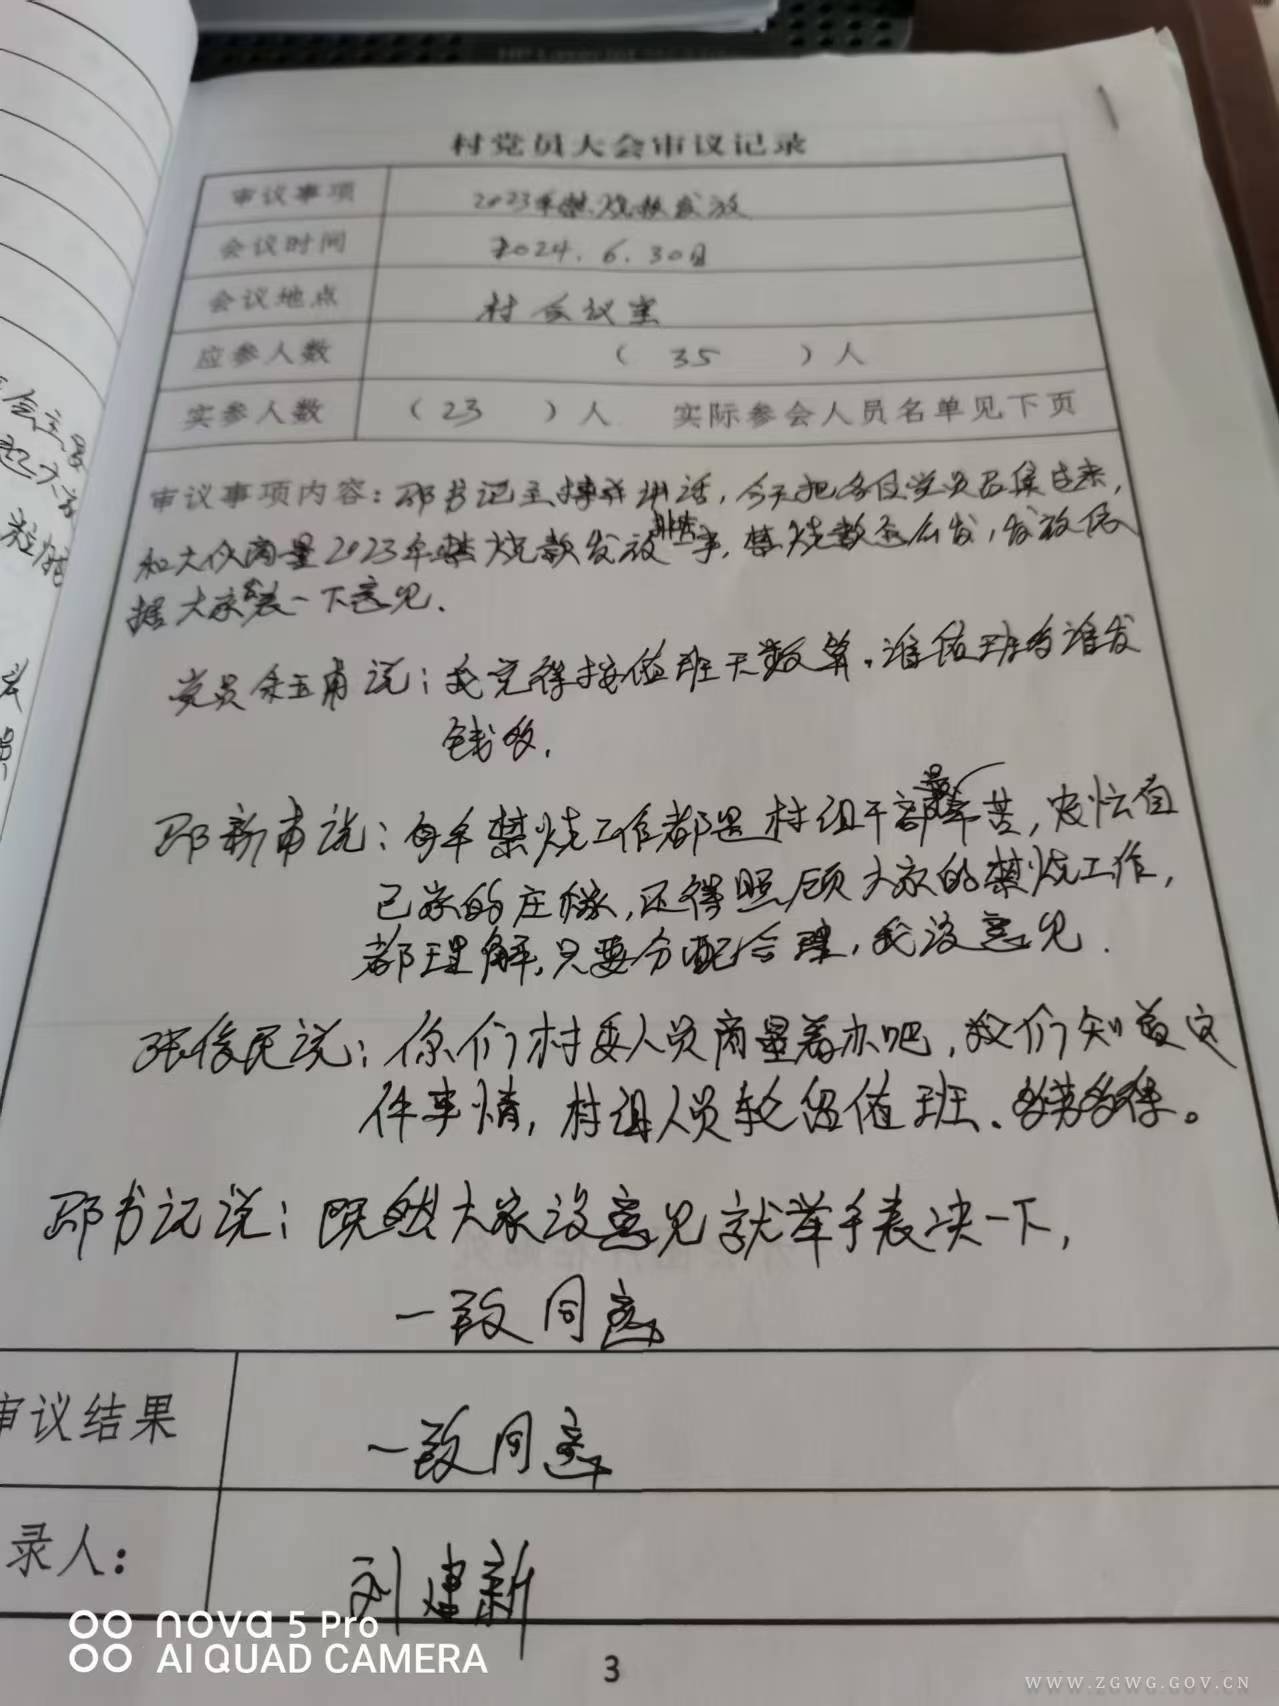 村党员大会审议记录
审议事项 2023年禁烧款发放
会议时间 2024.6.30日
会议地点 村会议室
应参人数 ( 35 )人
实参人数 ( 23 )人 实际参会人员名单见下页
审议事项内容：邵书记主持并讲话，今天把各位党员召集过来，
和大伙商量2023年禁烧款发放一事，禁烧款怎么发，发放依
据大家发表一下意见.
党员余玉甫说：我觉得按值班天数算，谁值班多谁发
钱多.
邵新甫说：每年禁烧工作都是村组干部最辛苦，忙自
己家的庄稼，还得照顾大家的禁烧工作，
都理解，只要分配合理，我没意见.
张俊民说：你们村委人员商量着办吧，我们知道这
件事情，村组人员轮留值班、多劳多得。
邵书记说：既然大家没意见就举手表决一下，
一致同意
审议结果 一致同意
录人： 刘建新
3
nova 5 Pro
AI QUAD CAMERA
WWW.ZGWG.GOV.CN